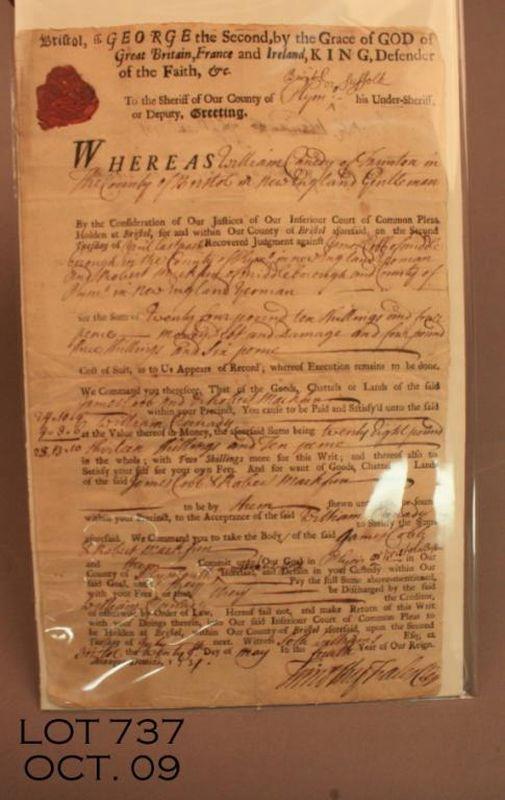 Bristol, ss. GEORGE the Second, by the Grace of GOD of
Great Britain, France and Ireland, KING, Defender
of the Faith, &c.
Bristol or Suffolk
To the Sheriff of Our County of Plymo his Under-Sheriff,
or Deputy, Greeting.
WHEREAS William Canedy of Taunton in
the County of Bristol in New England Gentleman
By the Consideration of Our Justices of Our Inferiour Court of Common Pleas
Holden at Bristol, for and within Our County of Bristol aforesaid, on the Second
Tuesday of April last past Recovered Judgment against James Cobb of middle
borough in the County of Plymo in new England Yeoman
and Robert Mackfun of middleborough and County of
in New England Yeoman
for the Sum of Twenty four pound ten Shillings and four
pence money debt and Damage and four pound
three Shillings and Six pence
Cost of Suit, as to Us Appears of Record; whereof Execution remains to be done.
We Command you therefore, That of the Goods, Chattels or Lands of the said
James Cobb and Robert Mackfun
within your Precinct, You cause to be Paid and Satisfy'd unto the said
24-10-4
William Canedy
4-3-6 at the Value thereof in Money, the aforesaid Sums being twenty eight pound
28.13.10 thirteen Shillings and Ten pence
in the whole; with Four Shillings more for this Writ; and thereof also to
Satisfy your self for your own Fees. And for want of Goods, Chattels or Lands
of the said James Cobb & Robert Mackfun
to be by them shewn unto you or found
within your Precinct, to the Acceptance of the said William Canedy
to Satisfy the Sums
aforesaid. We Command you to take the Body of the said James Cobb
& Robert Mackfun
and them Commit unto Our Goal in in Our
County of Plymouth aforesaid, and Detain in your Custody within Our
said Goal, until they Pay the full Sums abovementioned,
with your Fees, or that they be Discharged by the said
William Canedy the Creditor,
or otherwise by Order of Law. Hereof fail not, and make Return of this Writ
with your Doings therein, into Our said Inferiour Court of Common Pleas
to be Holden at Bristol, within Our County of Bristol aforesaid, upon the Second
Tuesday of July next. Witness Seth Williams Esq; at
Bristol the Day of May In the fourth Year of Our Reign.
Annoque Domini, 1731.
Timothy Fales Cler
LOT 737
OCT. 09